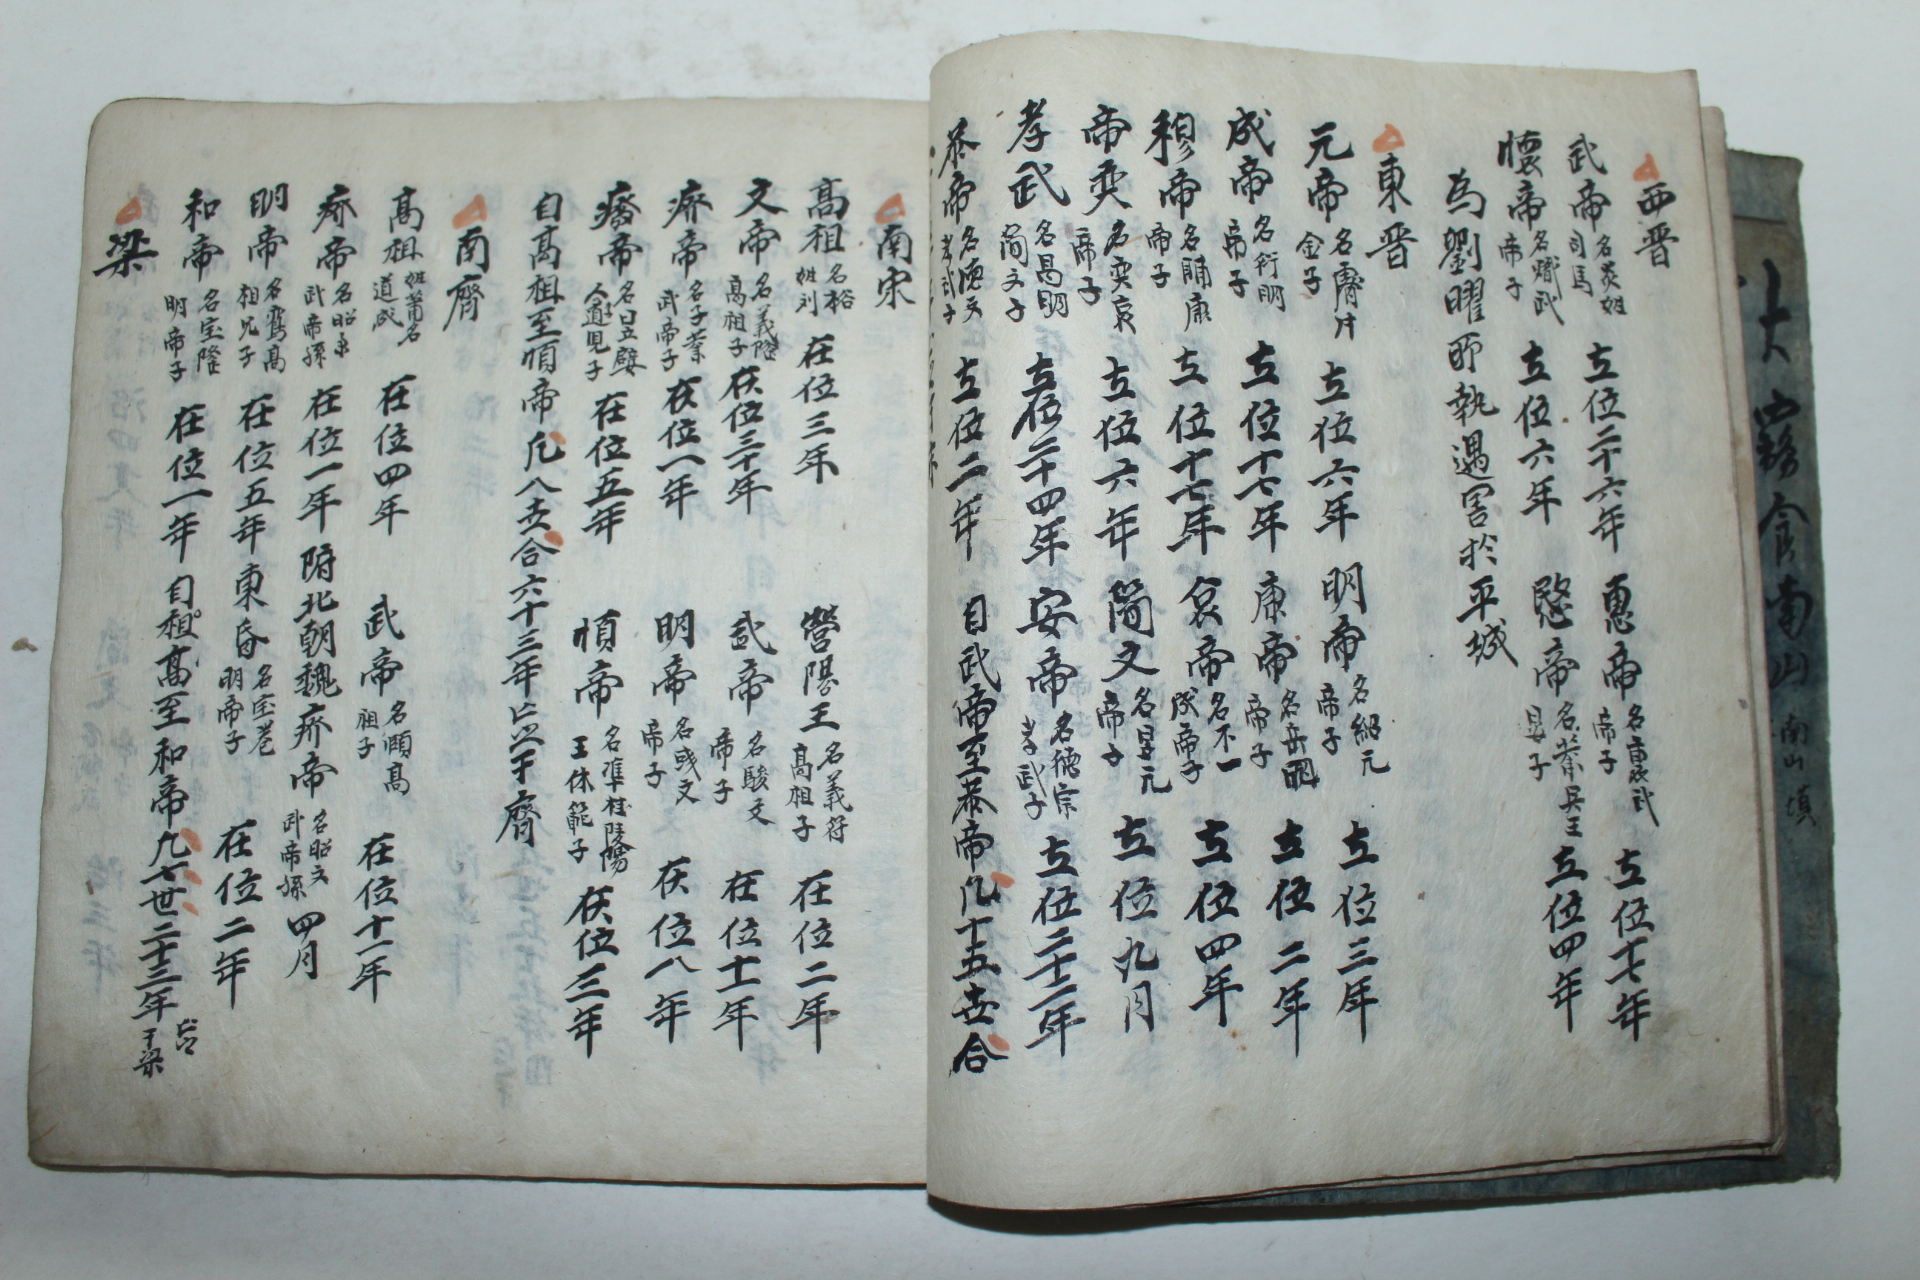 西晋
武帝 名炎姓司馬 立位二十六年 惠帝 名衷武帝子 立位十七年
懷帝 名熾武帝子 立位六年 愍帝 名業吳王晏子 立位四年
為劉曜所執遇害於平城
東晋
元帝 名睿 立位六年 明帝 名紹元帝子 立位三年
成帝 名衍明帝子 立位十七年 康帝 名岳明帝子 立位二年
穆帝 名聃康帝子 立位十七年 哀帝 名丕成帝子 立位四年
帝奕 名奕哀帝子 立位六年 簡文 名昱元帝子 立位九月
孝武 名昌明簡文子 立位二十四年 安帝 名德宗孝武子 立位二十二年
恭帝 名德文孝武子 立位二年 自武帝至恭帝凡十五世合
南宋
高祖 名裕姓刘 在位三年 營陽王 名義符高祖子 在位二年
文帝 名義隆高祖子 在位三十年 武帝 名駿文帝子 在位十一年
廢帝 名子業武帝子 在位一年 明帝 名彧文帝子 在位八年
廢帝 在位五年 順帝 名准桂陽王休範子 在位三年
自高祖至順帝凡八世合六十三年亡于齊
南齊
高祖 姓蕭名道成 在位四年 武帝 名頤高祖子 在位十一年
廢帝 名昭業武帝孫 在位一年 附北朝魏廢帝 名昭文武帝孫 四月
明帝 名鸞高祖兄子 在位五年 東昏 名宝卷明帝子 在位二年
和帝 名宝隆明帝子 在位一年 自祖高至和帝凡七世二十三年亡于梁
梁